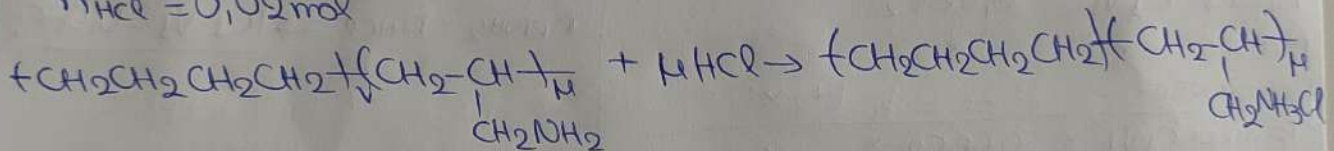 nHCl = 0,02mol
+CH2CH2CH2CH2+(CH2-CH-)μ + μHCl → +CH2CH2CH2CH2+(CH2-CH+)μ
CH2NH2 CH2NH3Cl